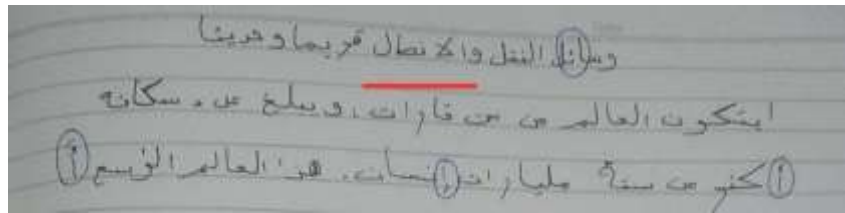 وسائل النقل والاتصال قديما وحديثا
ايتكون العالم من من قارات، ويبلغ عدد سكانه
أكثر من ستة مليارات إنسان. هذا العالم الوسع أ